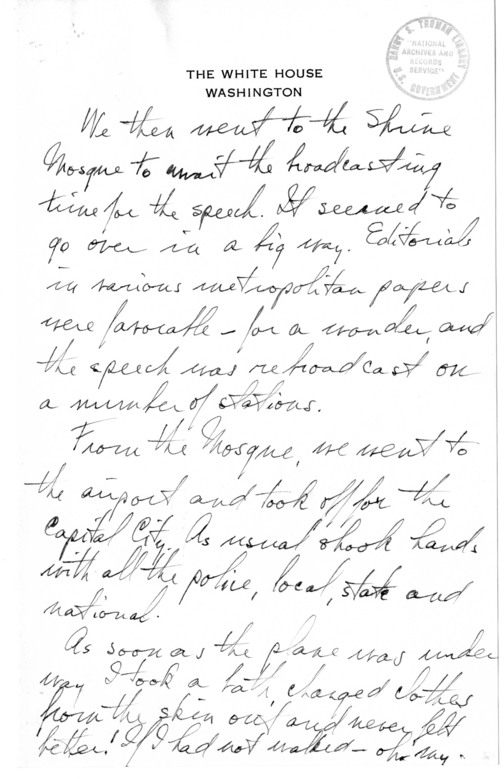 HARRY S. TRUMAN LIBRARY
"NATIONAL
ARCHIVES AND
RECORDS
SERVICE"
U.S. GOVERNMENT
THE WHITE HOUSE
WASHINGTON
We then went to the Shrine
Mosque to await the broadcasting
time for the speech. It seemed to
go over in a big way. Editorials
in various metropolitan papers
were favorable – for a wonder, and
the speech was rebroadcast on
a number of stations.
From the Mosque, we went to
the airport and took off for the
Capital City. As usual shook hands
with all the police, local, state and
national.
As soon as the plane was under
way I took a bath, changed clothes
from the skin out and never felt
better! If I had not walked – oh! my.